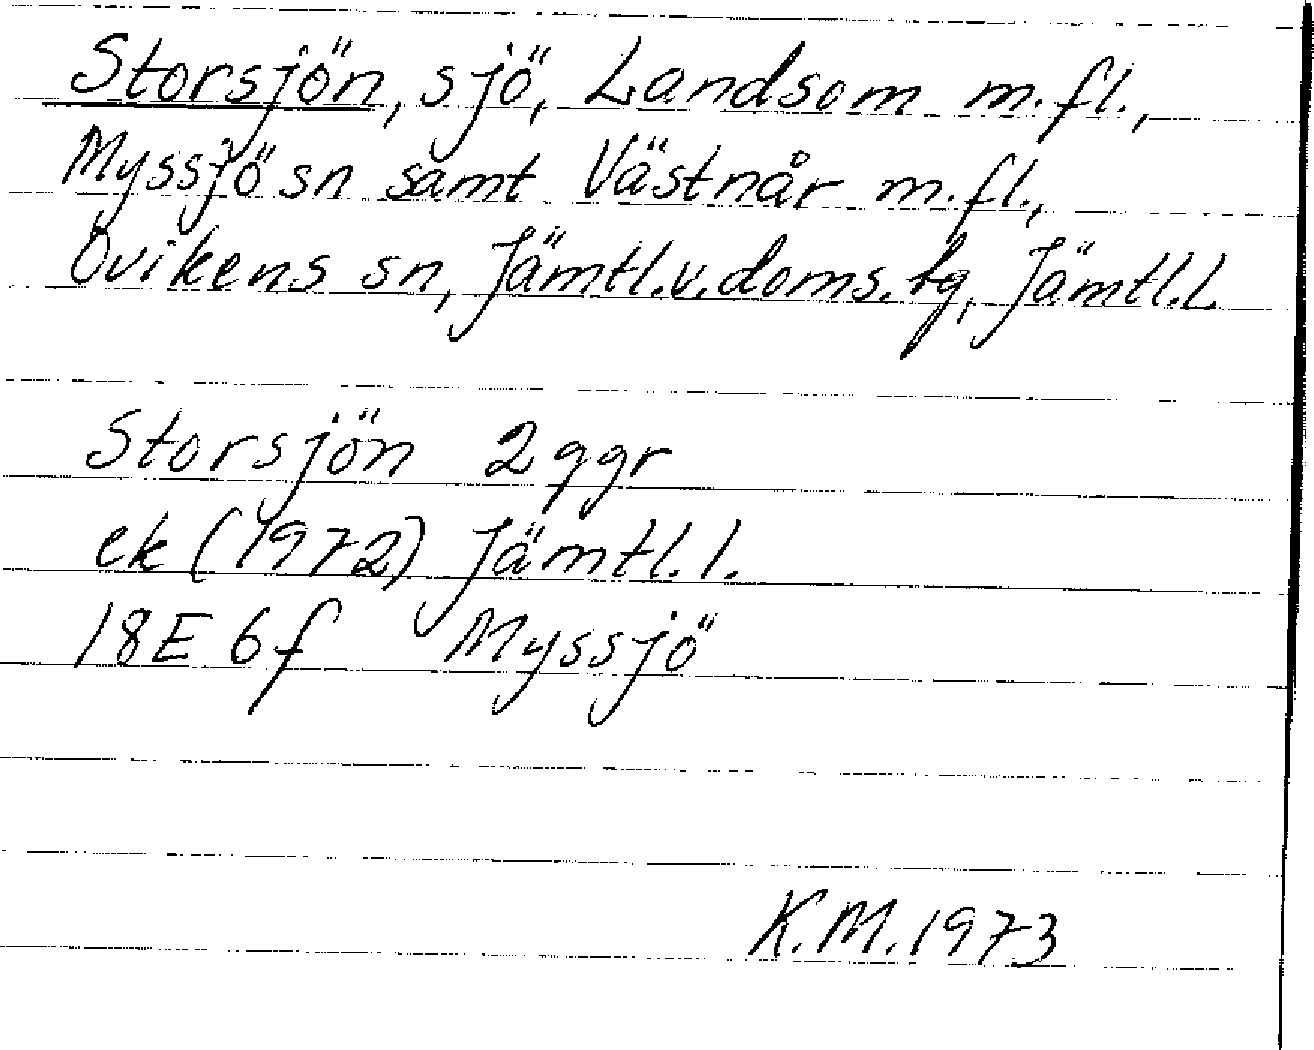 Storsjön, sjö, Landsom m.fl.,
Myssjö sn samt Västnår m.fl.,
Ovikens sn, Jämtl.v.doms.tg, Jämtl.L.
Storsjön 2 ggr
ek (1972) Jämtl.l.
18E 6f Myssjö
K.M.1973